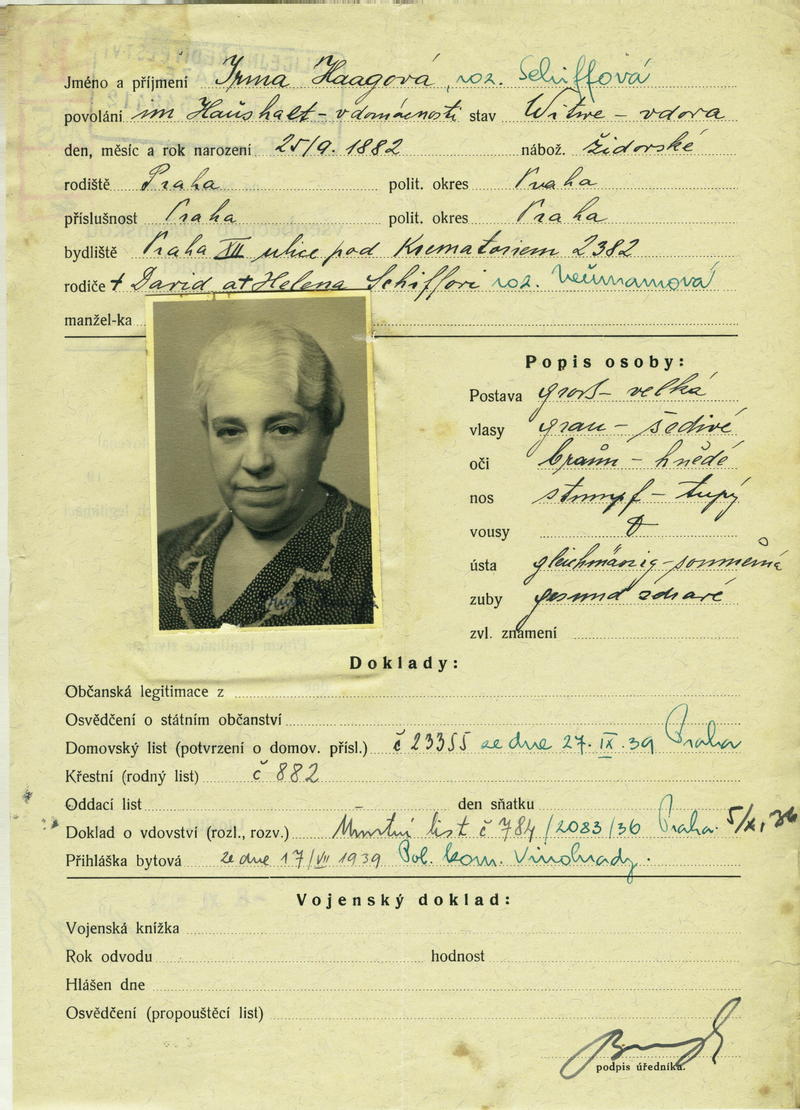 Jméno a příjmení Irma Haagová, roz. Schiffová
povolání im Haushalt – v domácnosti stav Witwe – vdova
den, měsíc a rok narození 25/9. 1882 nábož. židovské
rodiště Praha polit. okres Praha
příslušnost Praha polit. okres Praha
bydliště Praha XII ulice pod Krematoriem 2382
rodiče + David a + Helena Schiffovi roz. Neumannová
manžel-ka
Popis osoby:
Postava gross – velká
vlasy grau – šedivé
oči braun – hnědé
nos stumpf – tupý
vousy
ústa gleichmässig – souměrná
zuby gesund zdravé
zvl. znamení
Doklady:
Občanská legitimace z
Osvědčení o státním občanství
Domovský list (potvrzení o domov. přísl.) č 23355 ze dne 27. IX. 39 Praha
Křestní (rodný list) č 882
Oddací list – den sňatku
Doklad o vdovství (rozl., rozv.) Úmrtní list č 784/2083/36 Praha 5/XI, 36
Přihláška bytová ze dne 17/VII 1939 Pol. kom. Vinohrady.
Vojenský doklad:
Vojenská knížka
Rok odvodu hodnost
Hlášen dne
Osvědčení (propouštěcí list)
podpis úředníka.